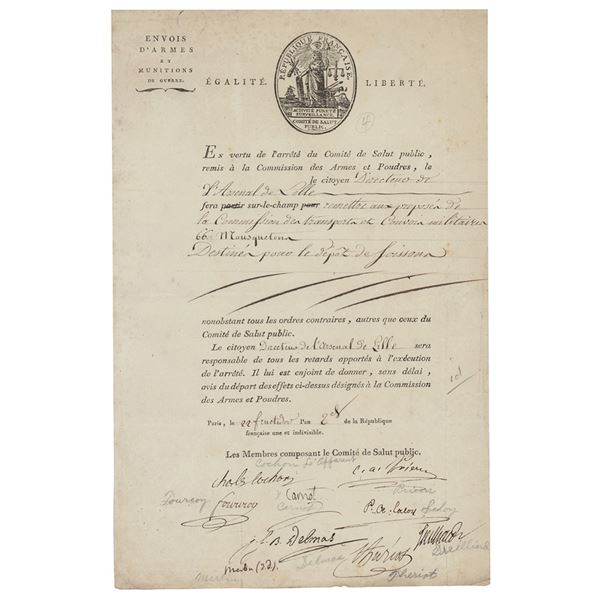 ENVOIS
D'ARMES
ET
MUNITIONS
DE GUERRE.
ÉGALITÉ.
LIBERTÉ.
RÉPUBLIQUE FRANÇAISE.
ACTIVITÉ PURETÉ
SURVEILLANCE.
COMITÉ DE SALUT
PUBLIC.
4
En vertu de l'arrêté du Comité de Salut public,
remis à la Commission des Armes et Poudres, le
le citoyen Directeur de
l'Arsenal de Lille
fera partir sur-le-champ pour remettre aux préposés de
la Commission des transports et Convois militaires
66 Mousquetons
Destinés pour le dépôt de Soissons
nonobstant tous les ordres contraires, autres que ceux du
Comité de Salut public.
Le citoyen Directeur de l'Arsenal de Lille sera
responsable de tous les retards apportés à l'exécution
de l'arrêté. Il lui est enjoint de donner, sans délai,
avis du départ des effets ci-dessus désignés à la Commission
des Armes et Poudres.
Paris, le 22 fructidor l'an 2d de la République
française une et indivisible.
Les Membres composant le Comité de Salut public.
Cochon L'Apparent
Charles Cochon
C. A. Prieur
Prieur
Fourcroy
Fourcroy
Carnot
Carnot
P. A. Laloy
Laloy
E B. Delmas
Delmas
Treilhard
Treilhard
Merlin (d. D.)
Merlin
Thuriot
Thuriot